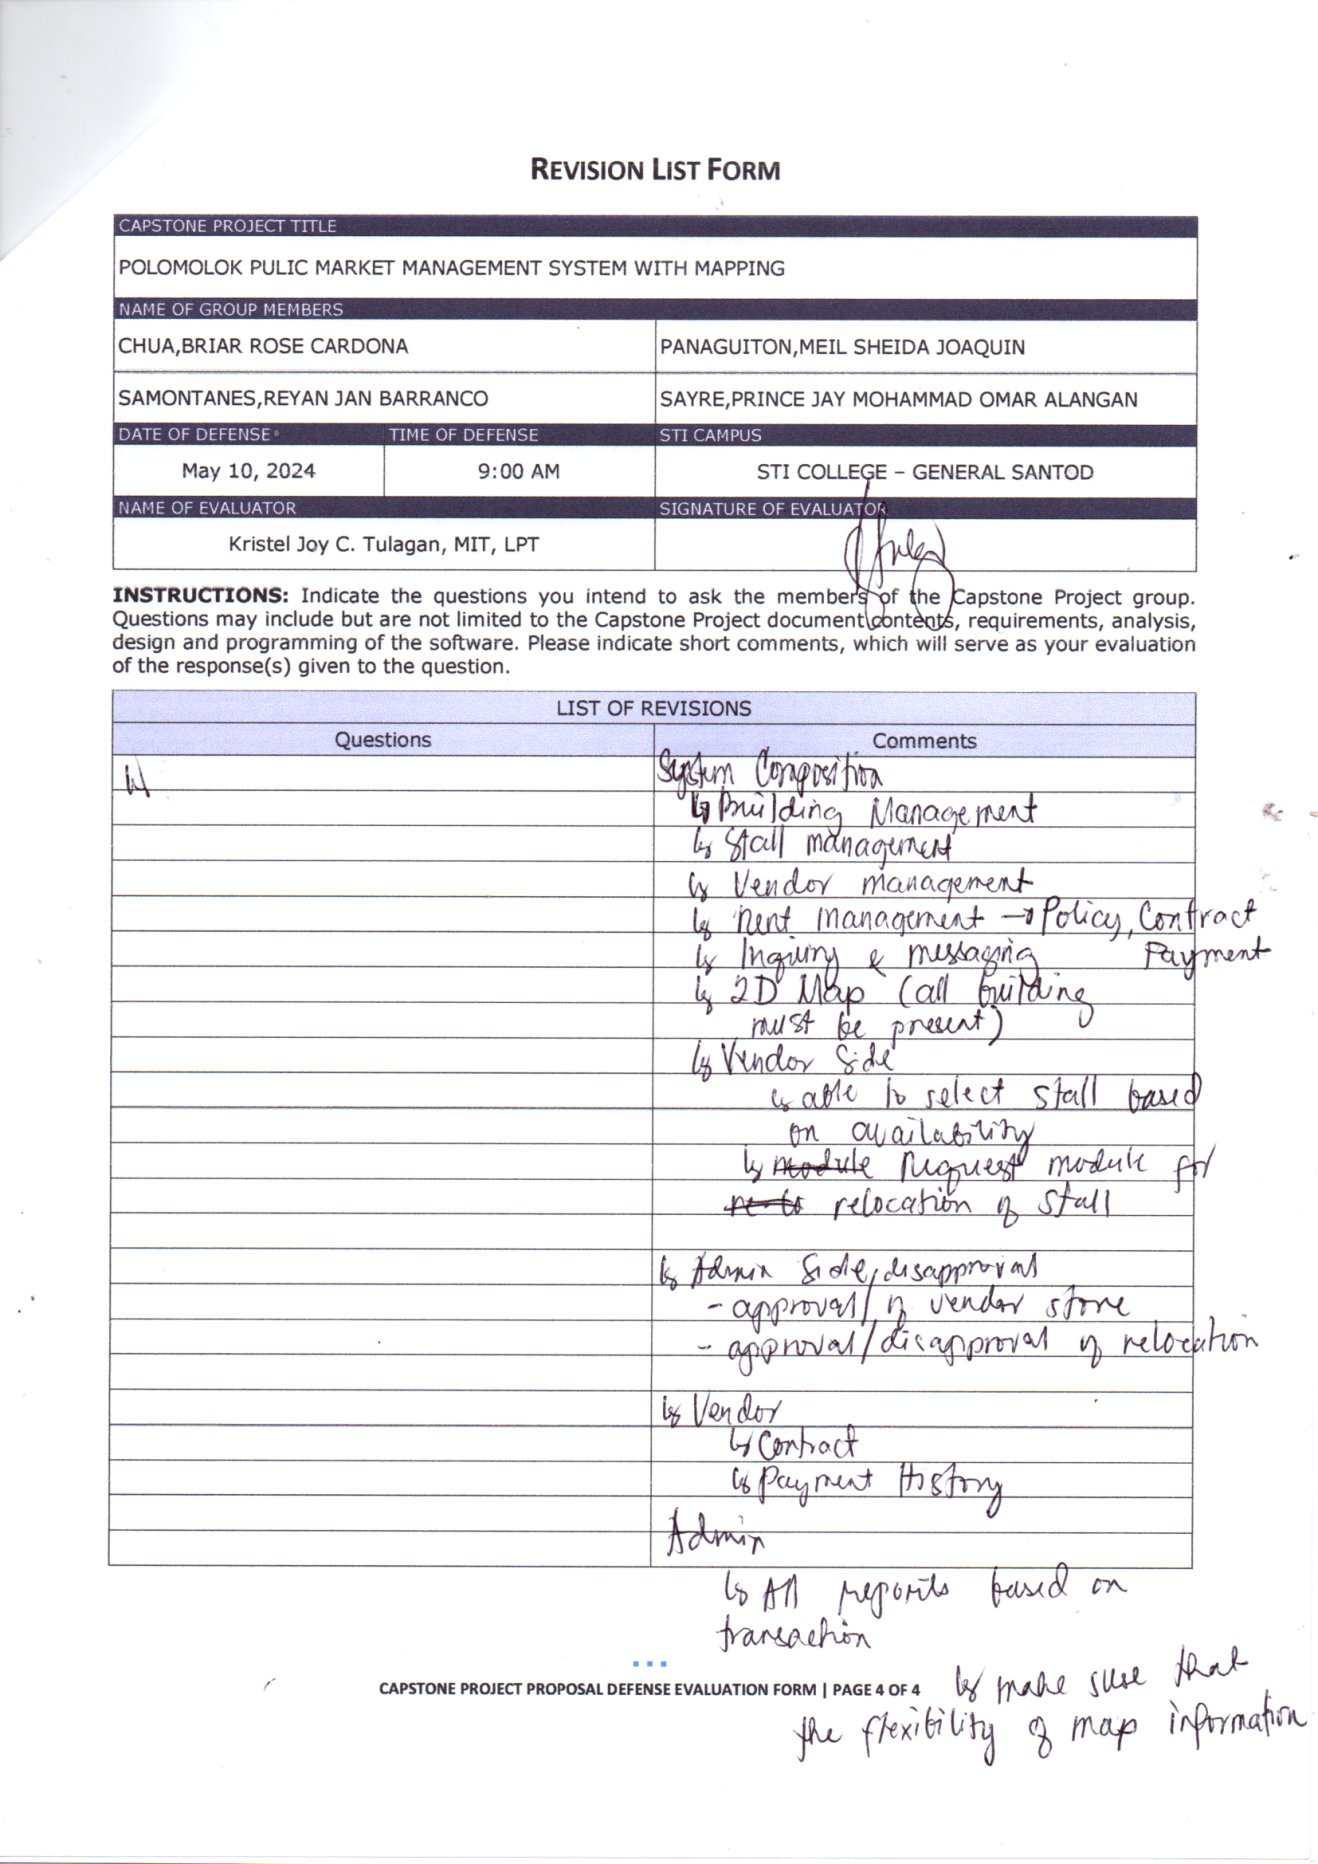 REVISION LIST FORM
CAPSTONE PROJECT TITLE
POLOMOLOK PULIC MARKET MANAGEMENT SYSTEM WITH MAPPING
NAME OF GROUP MEMBERS
CHUA,BRIAR ROSE CARDONA
PANAGUITON,MEIL SHEIDA JOAQUIN
SAMONTANES,REYAN JAN BARRANCO
SAYRE,PRINCE JAY MOHAMMAD OMAR ALANGAN
DATE OF DEFENSE
TIME OF DEFENSE
STI CAMPUS
May 10, 2024
9:00 AM
STI COLLEGE – GENERAL SANTOD
NAME OF EVALUATOR
SIGNATURE OF EVALUATOR
Kristel Joy C. Tulagan, MIT, LPT
INSTRUCTIONS: Indicate the questions you intend to ask the members of the Capstone Project group.
Questions may include but are not limited to the Capstone Project document contents, requirements, analysis,
design and programming of the software. Please indicate short comments, which will serve as your evaluation
of the response(s) given to the question.
LIST OF REVISIONS
Questions
Comments
System Composition
↳ Building Management
↳ Stall management
↳ Vendor management
↳ Rent management → Policy, Contract
Payment
↳ Inquiry & messaging
↳ 2D Map (all building
must be present)
↳ Vendor Side
↳ able to select stall based
on availability
↳ module Request module for
relocation of stall
↳ Admin Side
- approval/disapproval of vendor store
- approval/disapproval of relocation
↳ Vendor
↳ Contract
↳ Payment History
Admin
↳ All reports based on
transaction
CAPSTONE PROJECT PROPOSAL DEFENSE EVALUATION FORM | PAGE 4 OF 4
↳ make sure that
the flexibility of map information